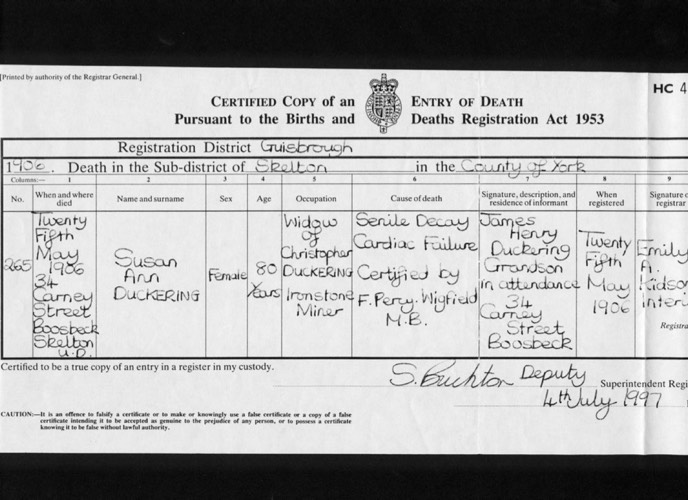 [Printed by authority of the Registrar General.]
HC 4
CERTIFIED COPY of an ENTRY OF DEATH
Pursuant to the Births and Deaths Registration Act 1953
Registration District Guisbrough
1906. Death in the Sub-district of Skelton in the County of York
Columns:— 1 2 3 4 5 6 7 8 9
No. When and where died Name and surname Sex Age Occupation Cause of death Signature, description, and residence of informant When registered Signature registrar
265
Twenty
Fifth
May
1906
34
Carney
Street
Boosbeck
Skelton
U.D.
Susan
Ann
DUCKERING
Female
80
Years
Widow
of
Christopher
DUCKERING
Ironstone
Miner
Senile Decay
Cardiac Failure
Certified by
F. Percy. Wigfield
M.B.
James
Henry
Duckering
Grandson
in attendance
34
Carney
Street
Boosbeck
Twenty
Fifth
May
1906
Emily
A.
Kidson
Interi
Registra
Certified to be a true copy of an entry in a register in my custody.
Deputy Superintendent Regi
4th July 1997
CAUTION:—It is an offence to falsify a certificate or to make or knowingly use a false certificate or a copy of a false
certificate intending it to be accepted as genuine to the prejudice of any person, or to possess a certificate
knowing it to be false without lawful authority.